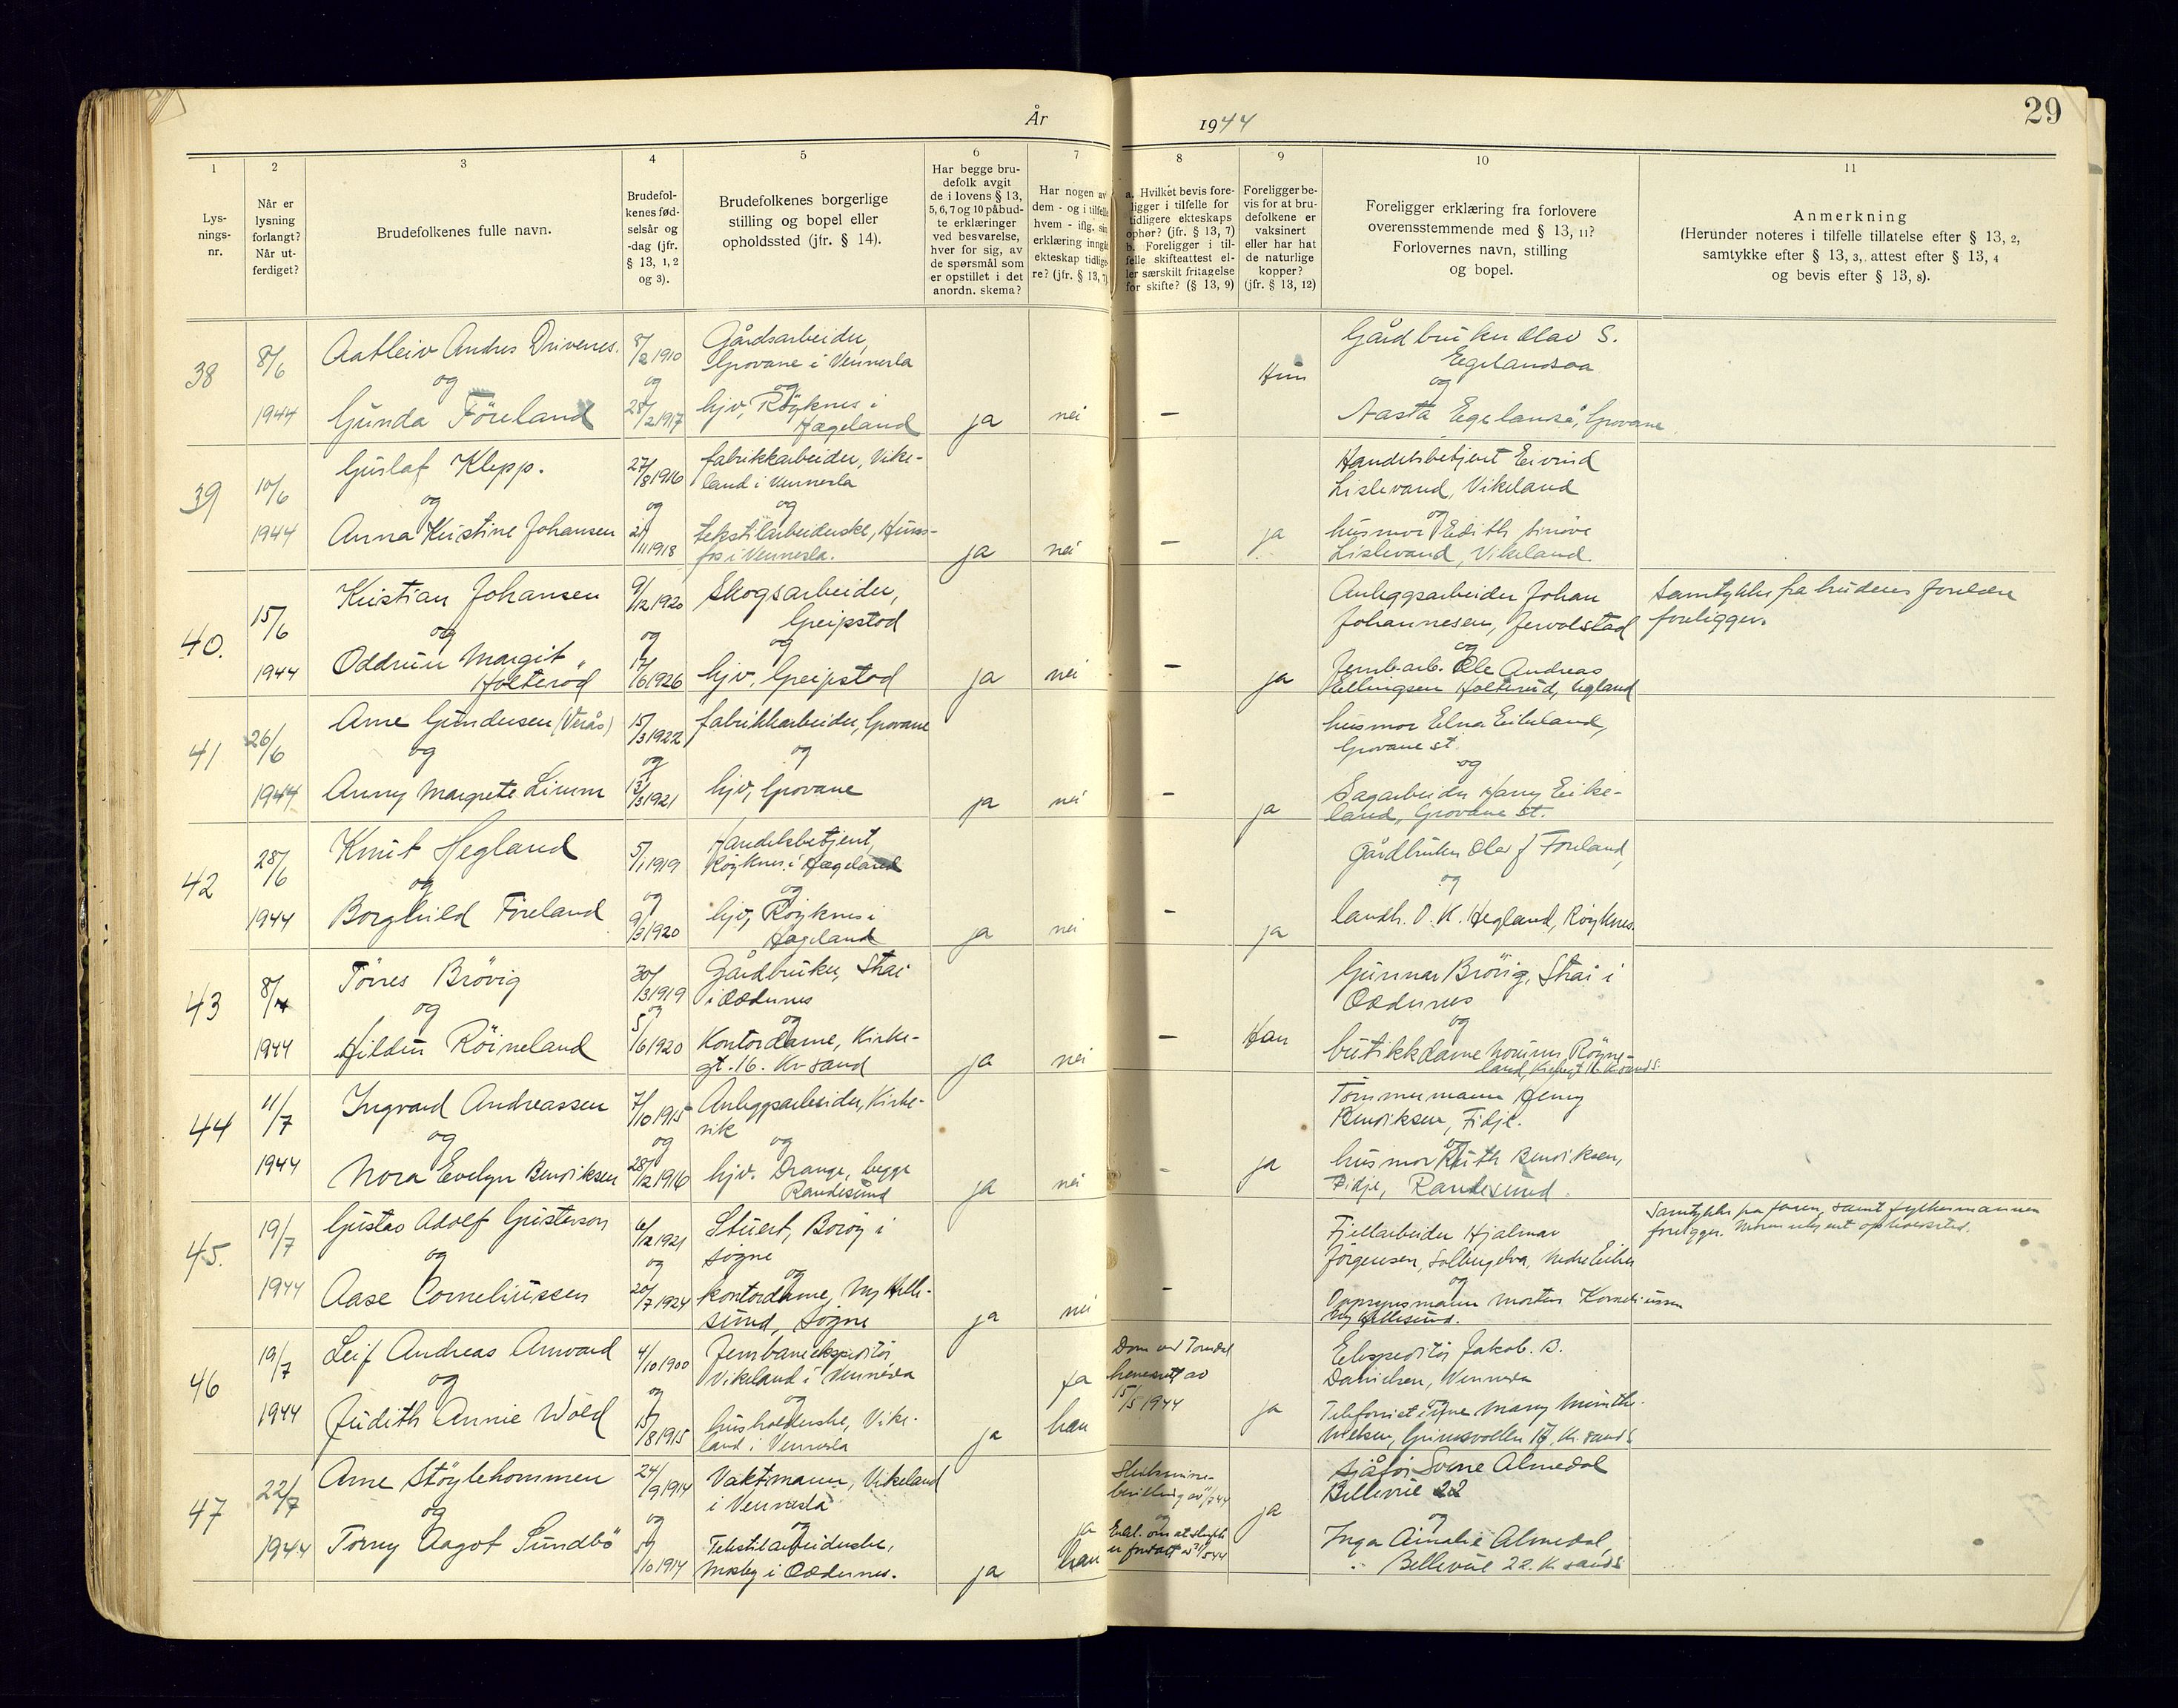 År 1944
29
1
Lys-
nings-
nr.
2
Når er
lysning
forlangt?
Når ut-
ferdiget?
3
Brudefolkenes fulle navn.
4
Brudefol-
kenes fød-
selsår og
-dag (jfr.
§ 13, 1, 2
og 3).
5
Brudefolkenes borgerlige
stilling og bopel eller
opholdssted (jfr. § 14).
6
Har begge bru-
defolk avgit
de i lovens § 13,
5, 6, 7 og 10 påbud-
te erklæringer
ved besvarelse,
hver for sig, av
de spørsmål som
er opstillet i det
anordn. skema?
7
Har nogen av
dem - og i tilfelle
hvem - iflg. sin
erklæring inngåt
ekteskap tidlige-
re? (jfr. § 13, 7)
8
a. Hvilket bevis fore-
ligger i tilfelle for
tidligere ekteskaps
ophør? (jfr. § 13, 7)
b. Foreligger i til-
felle skifteattest el-
ler særskilt fritagelse
for skifte? (§ 13, 9)
9
Foreligger be-
vis for at bru-
defolkene er
vaksinert
eller har hat
de naturlige
kopper?
(jfr. § 13, 12)
10
Foreligger erklæring fra forlovere
overensstemmende med § 13, 11?
Forlovernes navn, stilling
og bopel.
11
Anmerkning
(Herunder noteres i tilfelle tillatelse efter § 13, 2,
samtykke efter § 13, 3, attest efter § 13, 4
og bevis efter § 13, 8).
38
8/6
1944
Aatleiv Andres Drivenes.
og
Gunda Föreland
8/2 1910
og
28/2 1917
Gårdsarbeider,
Grovane i Vennesla
og
hjv, Röyknes i
Hægeland
ja
nei
–
Hun
Gårdbruker Olav S.
Egelandsaa
og
Aasta Egelandså, Grovane
39
10/6
1944
Gustaf Klepp.
og
Anna Kristine Johansen
27/8 1916
og
21/11 1918
fabrikkarbeider, Vike-
land i Vennesla
og
tekstilarbeiderske, Huns-
fos i Vennesla.
ja
nei
–
ja
Handelsbetjent Eivind
Lislevand, Vikeland
og
husmor Edith Sinöve
Lislevand, Vikeland.
40.
15/6
1944
Kristian Johansen
og
Oddrun Margit
Holteröd
9/12 1920
og
17/6 1926
Skogsarbeider,
Greipstad
og
hjv, Greipstad
ja
nei
–
ja
Anleggsarbeider Johan
Johannesen,
og
Jernb.arb. Ole Andreas
Ellingsen Holteröd,
Samtykke fra brudens foreldre
foreligger.
41
26/6
1944
Arne Gundersen (Verås)
og
Anny Margrete Limm
15/3 1922
og
13/3 1921
fabrikkarbeider, Grovane
og
hjv, Grovane
ja
nei
–
ja
husmor Elna Eikeland,
Grovane st.
og
Sagarbeider Harry Eike-
land, Grovane st.
42
28/6
1944
Knut Hegland
og
Borghild Föreland
5/1 1919
og
9/3 1920
Handelsbetjent,
Röyknes i Hægeland
og
hjv, Röyknes i
Hægeland
ja
nei
–
ja
Gårdbruker Olav J Föreland,
og
landh. O. K. Hegland, Röyknes.
43
8/7
1944
Törres Brövig
og
Hildur Röineland
30/3 1919
og
5/6 1920
Gårdbruker, Strai
i Oddernes
og
Kontordame, Kirke-
gt. 16. Kr sand
ja
nei
–
Han
Gunnar Brövig, Strai i
Oddernes
og
butikkdame Norunn Röyne-
land, Kirkegt 16. Kr.sand S.
44
11/7
1944
Ingvard Andreassen
og
Nora Evelyn Benriksen
7/10 1915
og
28/12 1916
Anleggsarbeider, Kirke-
vik
og
hjv. Drange, begge
Randesund
ja
nei
-
ja
Tömmermann Henry
Benriksen, Fidje.
og
husmor Ruth Benriksen,
Fidje, Randesund.
45.
19/7
1944
Gustav Adolf Gustavson
og
Aase Corneliussen
6/12 1921
og
20/7 1924
Stuert, Boröy i
Søgne
og
kontordame, Ny Helle-
sund, Søgne
ja
nei
-
Fjellarbeider Hjalmar
Jörgensen, Solbergelva, Nedre Eiker
og
Oppsynsmann Morten Korneliussen
Ny Hellesund.
Samtykke fra faren, samt fylkesmannen
foreligger.
46
19/7
1944
Leif Andreas Amvard
og
Judith Annie Wold
4/10 1900
og
15/8 1915
Jernbaneekspeditör
Vikeland i Vennesla
og
husholderske, Vike-
land i Vennesla
ja
ja
han
15/5 1944
ja
Ekspeditör Jakob. B.
Danielsen, Vennesla
og
Nielsen, Grimsvollen 17, Kr. sand S
47
22/7
1944
Arne Stöylehommen
og
Torny Aagot Sundbö
24/9 1914
og
5/10 1914
Vaktmann, Vikeland
i Vennesla
og
Tekstilarbeiderske,
Mosby i Oddernes.
ja
ja
han
og
Erkl. om at skifte
ja
Sjåför Sverre Almedal
Bellevue 22
og
Inga Amalie Almedal,
Bellevue 22. Kr. sand S